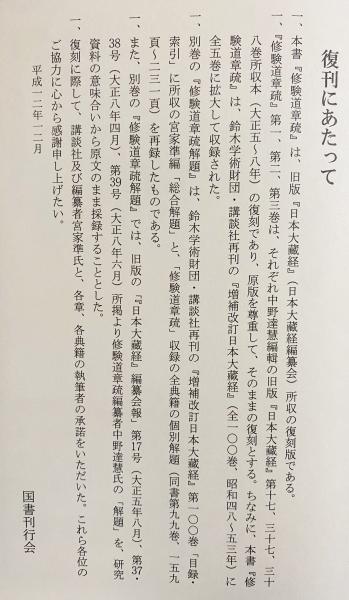 復刊にあたって
一、本書『修験道章疏』は、旧版『日本大藏経』（日本大藏経編纂会）所収の復刻版である。
一、『修験道章疏』第一、第二、第三巻は、それぞれ中野達慧編輯の旧版『日本大藏経』第十七、三十七、三十
八巻所収本（大正五～八年）の復刻であり、原版を尊重して、そのままの復刻とする。ちなみに、本書『修
験道章疏』は、鈴木学術財団・講談社再刊の『増補改訂日本大藏経』（全一〇〇巻、昭和四八～五三年）に
全五巻に拡大して収録された。
一、別巻の『修験道章疏解題』は、鈴木学術財団・講談社再刊の『増補改訂日本大藏経』第一〇〇巻「目録・
索引」に所収の宮家準編「総合解題」と、「修験道章疏」収録の全典籍の個別解題（同書第九九巻、一五九
頁～二三一頁）を再録したものである。
一、また、別巻の『修験道章疏解題』では、旧版の『『日本大藏経』編纂会報』第17号（大正五年八月）、第37・
38号（大正八年四月）、第39号（大正八年六月）所掲より修験道章疏編纂者中野達慧氏の「解題」を、研究
資料の意味合いから原文のまま採録することとした。
一、復刻に際して、講談社及び編纂者宮家準氏と、各章、各典籍の執筆者の承諾をいただいた。これら各位の
ご協力に心から感謝申し上げたい。
平成一二年一二月
国書刊行会